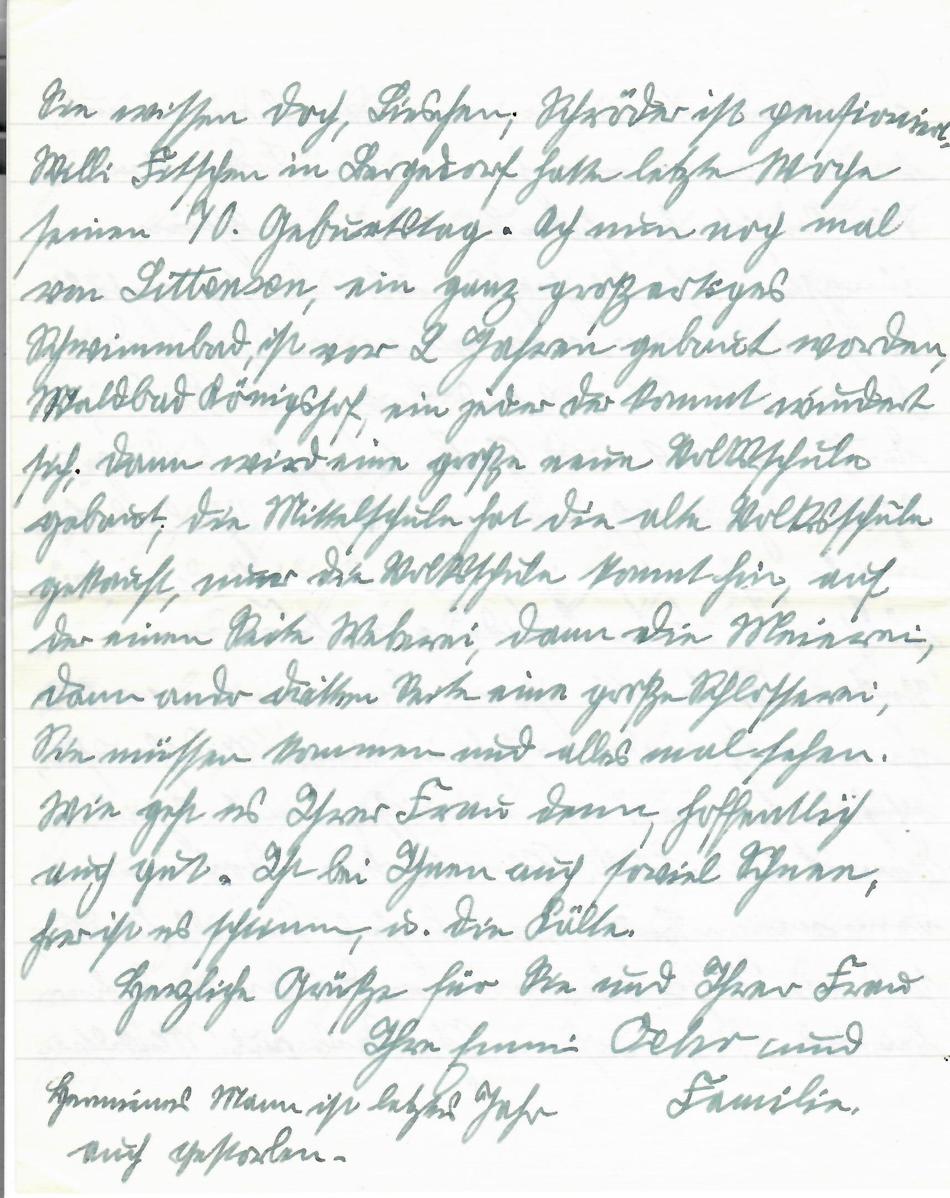 Sie wissen doch, Lieschen, Schröder ist pensioniert.
Willi Fitschen in Bergedorf hatte letzte Woche
seinen 70. Geburtstag. Ach nun noch mal
von ein ganz großartiges
Schwimmbad, ist vor 2 Jahren gebaut worden,
Waldbad Königshof, ein jeder der kommt wundert
sich, dann wird eine große neue Volksschule
gebaut, die Mittelschule hat die alte Volksschule
gekauft, die Volksschule kommt hin, auf
der einen Seite Weberei, dann die Meierei,
dann and dritten Seite eine große Schlosserei,
Sie müssen kommen und alles mal sehen.
Wie geht es Ihrer Frau denn, hoffentlich
auch gut. Ist bei Ihnen auch soviel Schnee,
hier ist es schlimm, u. die Kälte.
Herzliche Grüße für Sie und Ihrer Frau
Ihre Emmi und
Familie.
Hermines Mann ist letztes Jahr
auch gestorben.-